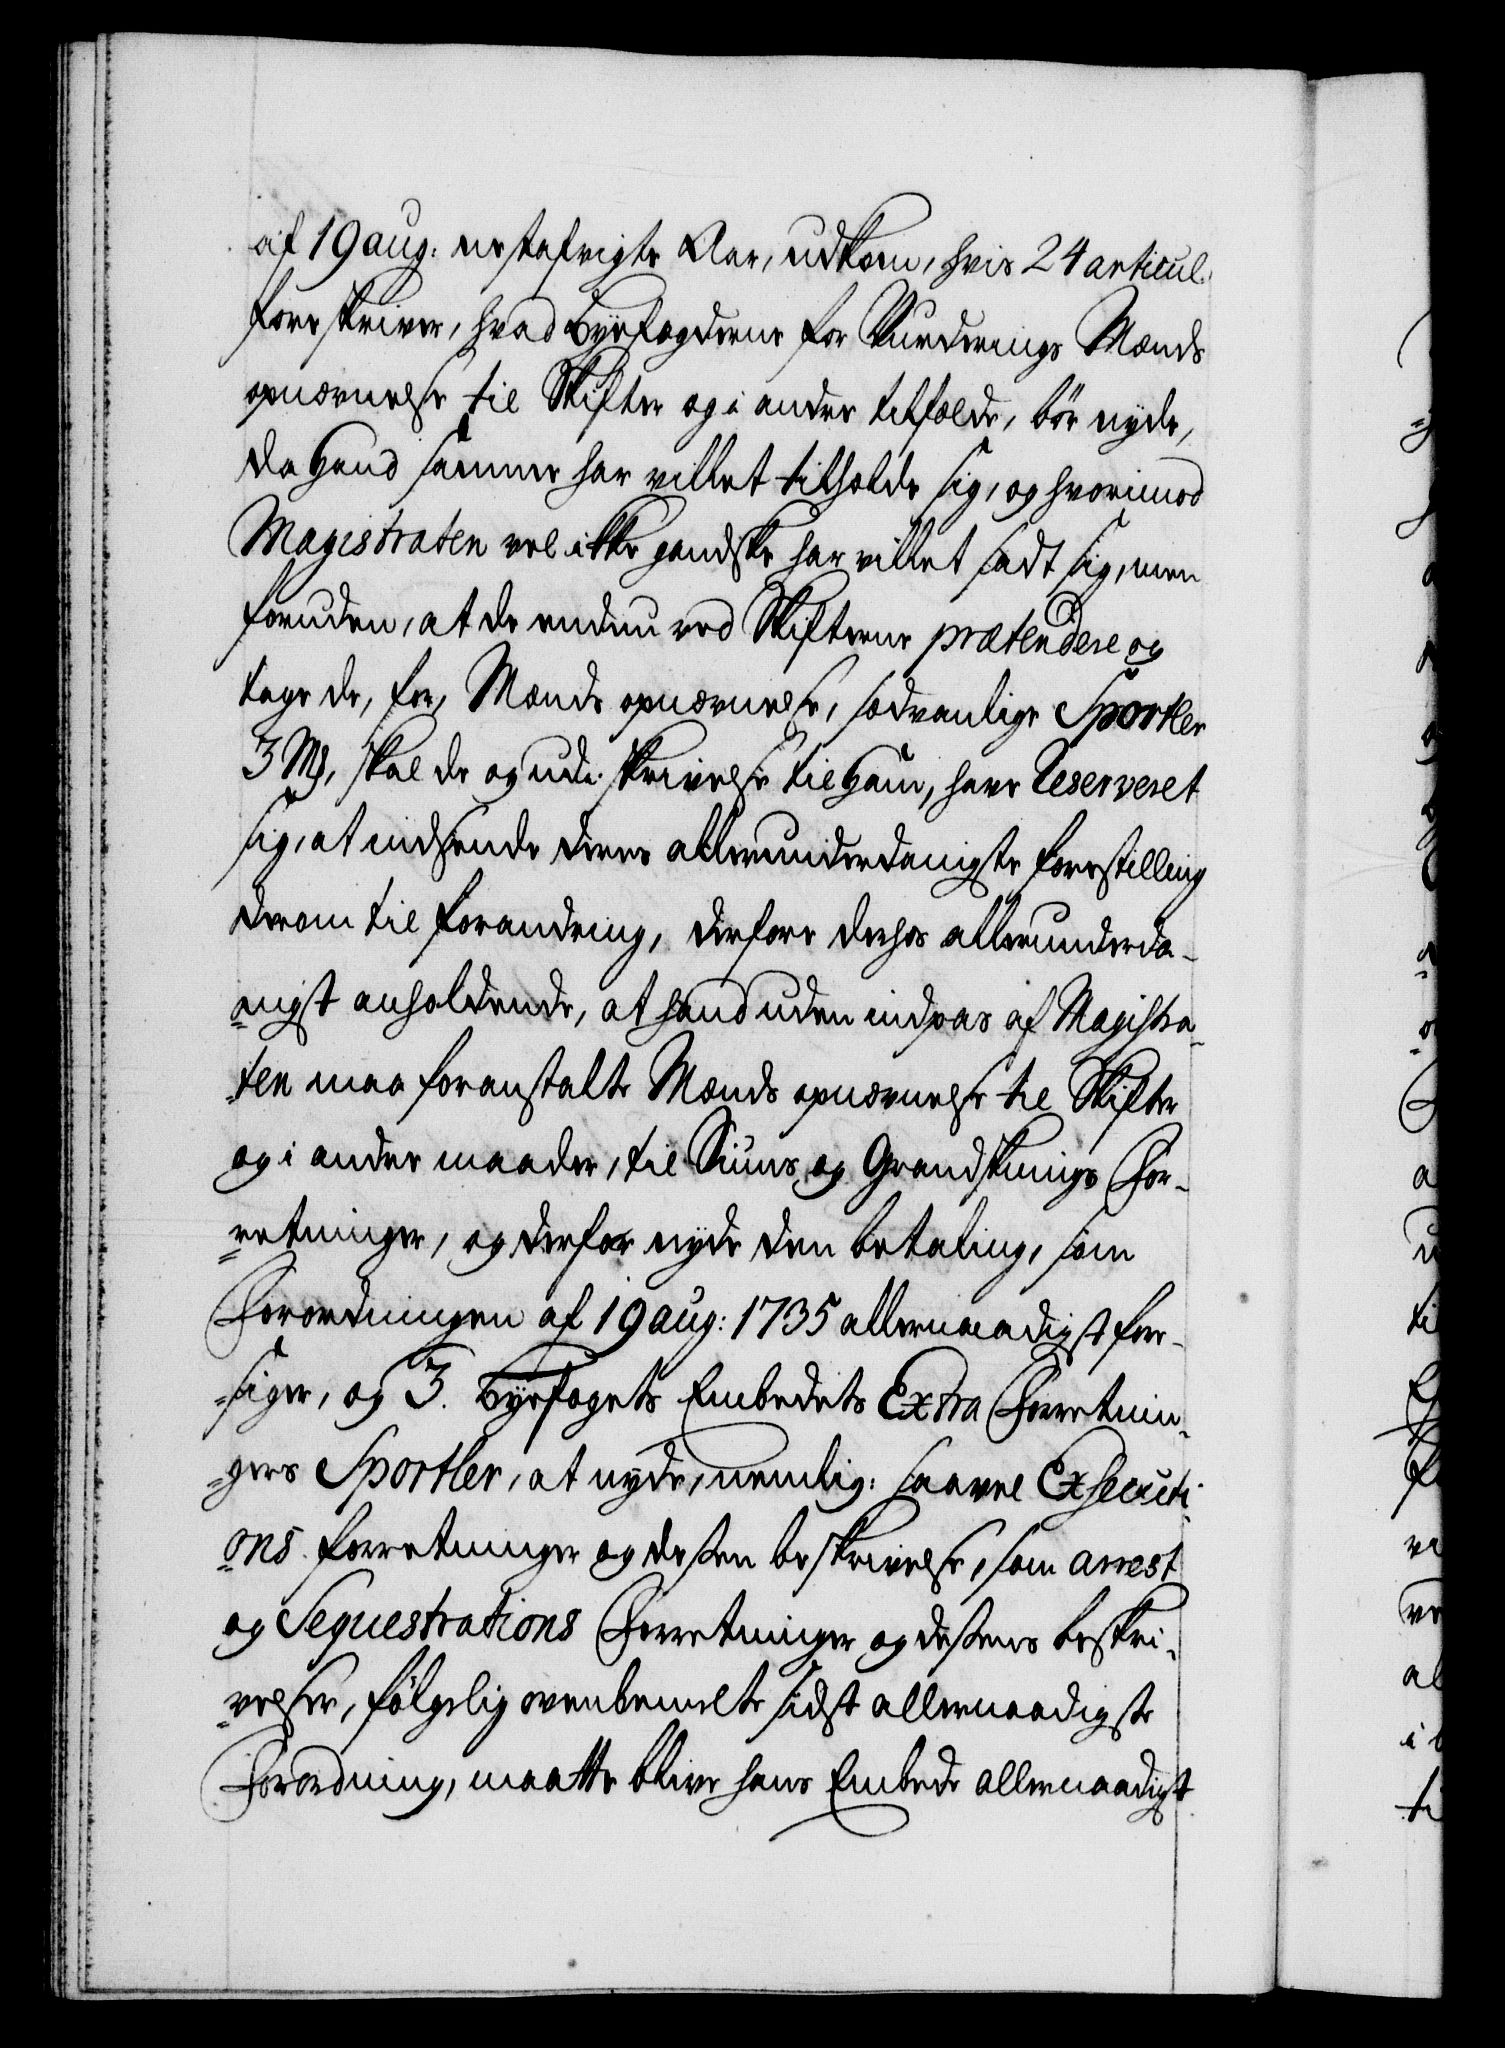 af 19 aug: nestafvigte Aar, udkom, hvis 24 articul.
foreskriver, hvad Byefogderne for Vurderings Mænds
opnævnelse til Skifter og i andre tilfælde, bör nyde,
da hand samme har villet tilholde sig, og hvorimod
Magistraten vel ikke gandske har villet sadt sig, men
foruden, at de endnu ved Skifterne prætendere og
tage de, for, Mænds opnævnelse, sædvanlige Sportler
3 Mk, skal de og udi skrivelse til ham, have Reserveret
sig, at indsende deres allerunderdanigste forestilling
derom til forandring, derfore derhos allerunderda-
-nigst anholdende, at hand uden indpas af Magistra-
-ten maa foranstalte Mænds opnævnelse til Skifter
og i andre maader, til Siuns og Grandsknings For-
-retninger, og derfor nyde den betaling, som
Forordningen af 19 aug: 1735 allernaadigst fore-
-siger, og 3. Byefogets Embedets Extra Forretnin-
-gers Sportler, at nyde, nemlig: saavel Exsecuti-
-ons forretninger og dessen beskrivelse, som arrest
og Sequestrations Forretninger og dessens beskri-
-velser, fölgelig ovenbemelte sidst allernaadigste
Forordning, maatte blive hans Embede allernaadigst